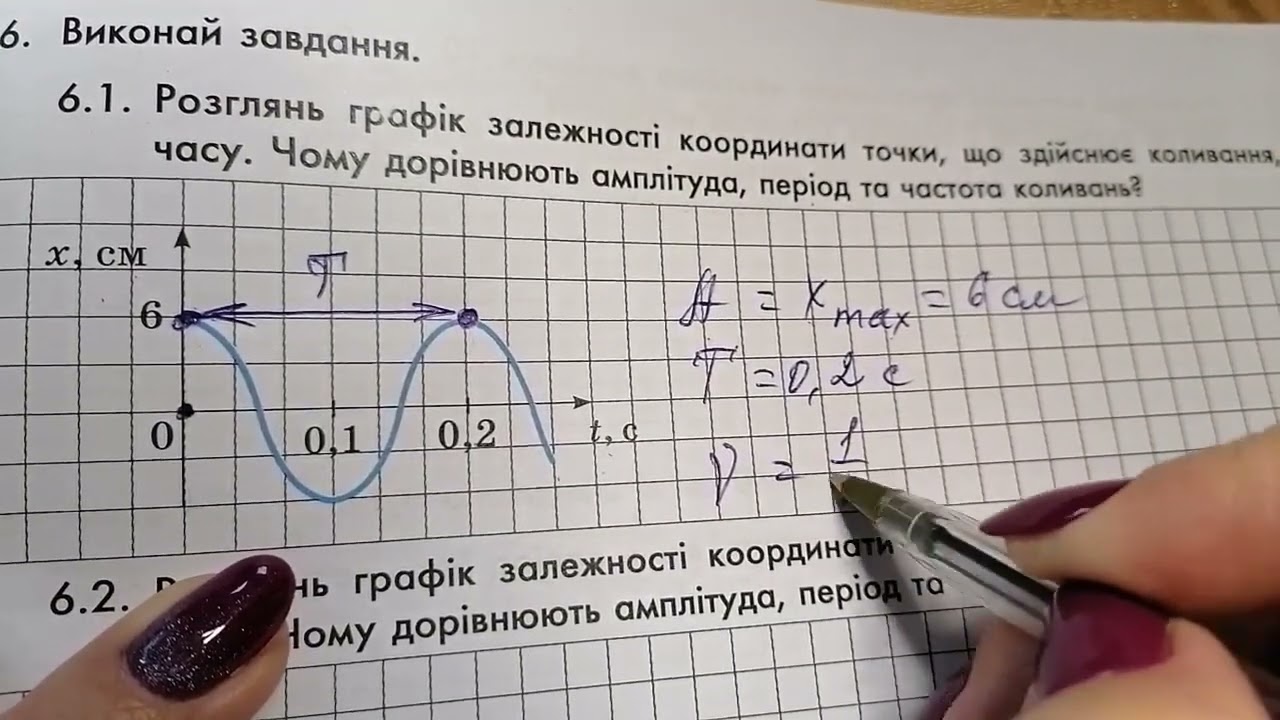 6. Виконай завдання.
6.1. Розглянь графік залежності координати точки, що здійснює коливання,
часу. Чому дорівнюють амплітуда, період та частота коливань?
x, см
T
6
0
0,1
0,2
t, с
A = x max = 6 см
T = 0,2 с
ν = 1
6.2. графік залежності координати
Чому дорівнюють амплітуда, період та